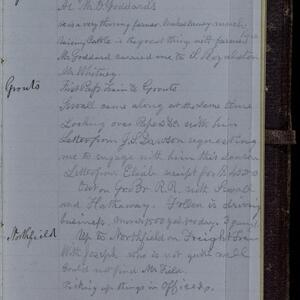 At Mr. D. Goddards
He is a very thriving farmer makes money
raising Cattle is the great thing with farmers here
Mr Goddard carried me to S. Royalston
Mr Whitney.
Grouts First Pass Train to Grouts
Sewall came along at the same time
Looking over Papers &c. with him
Letter from J. S. Lawson requesting
me to engage with him this season
Letter from Elizab receipt for
Out on Gro Br R.R. with Sewall
and Hathaway. Follen is driving
business, moves 1500 yds pr day.
Northfield Up to Northfield on Freight Train
With Joseph who is not quite well
Could not find Mr Field.
Picking up things in Office &c.